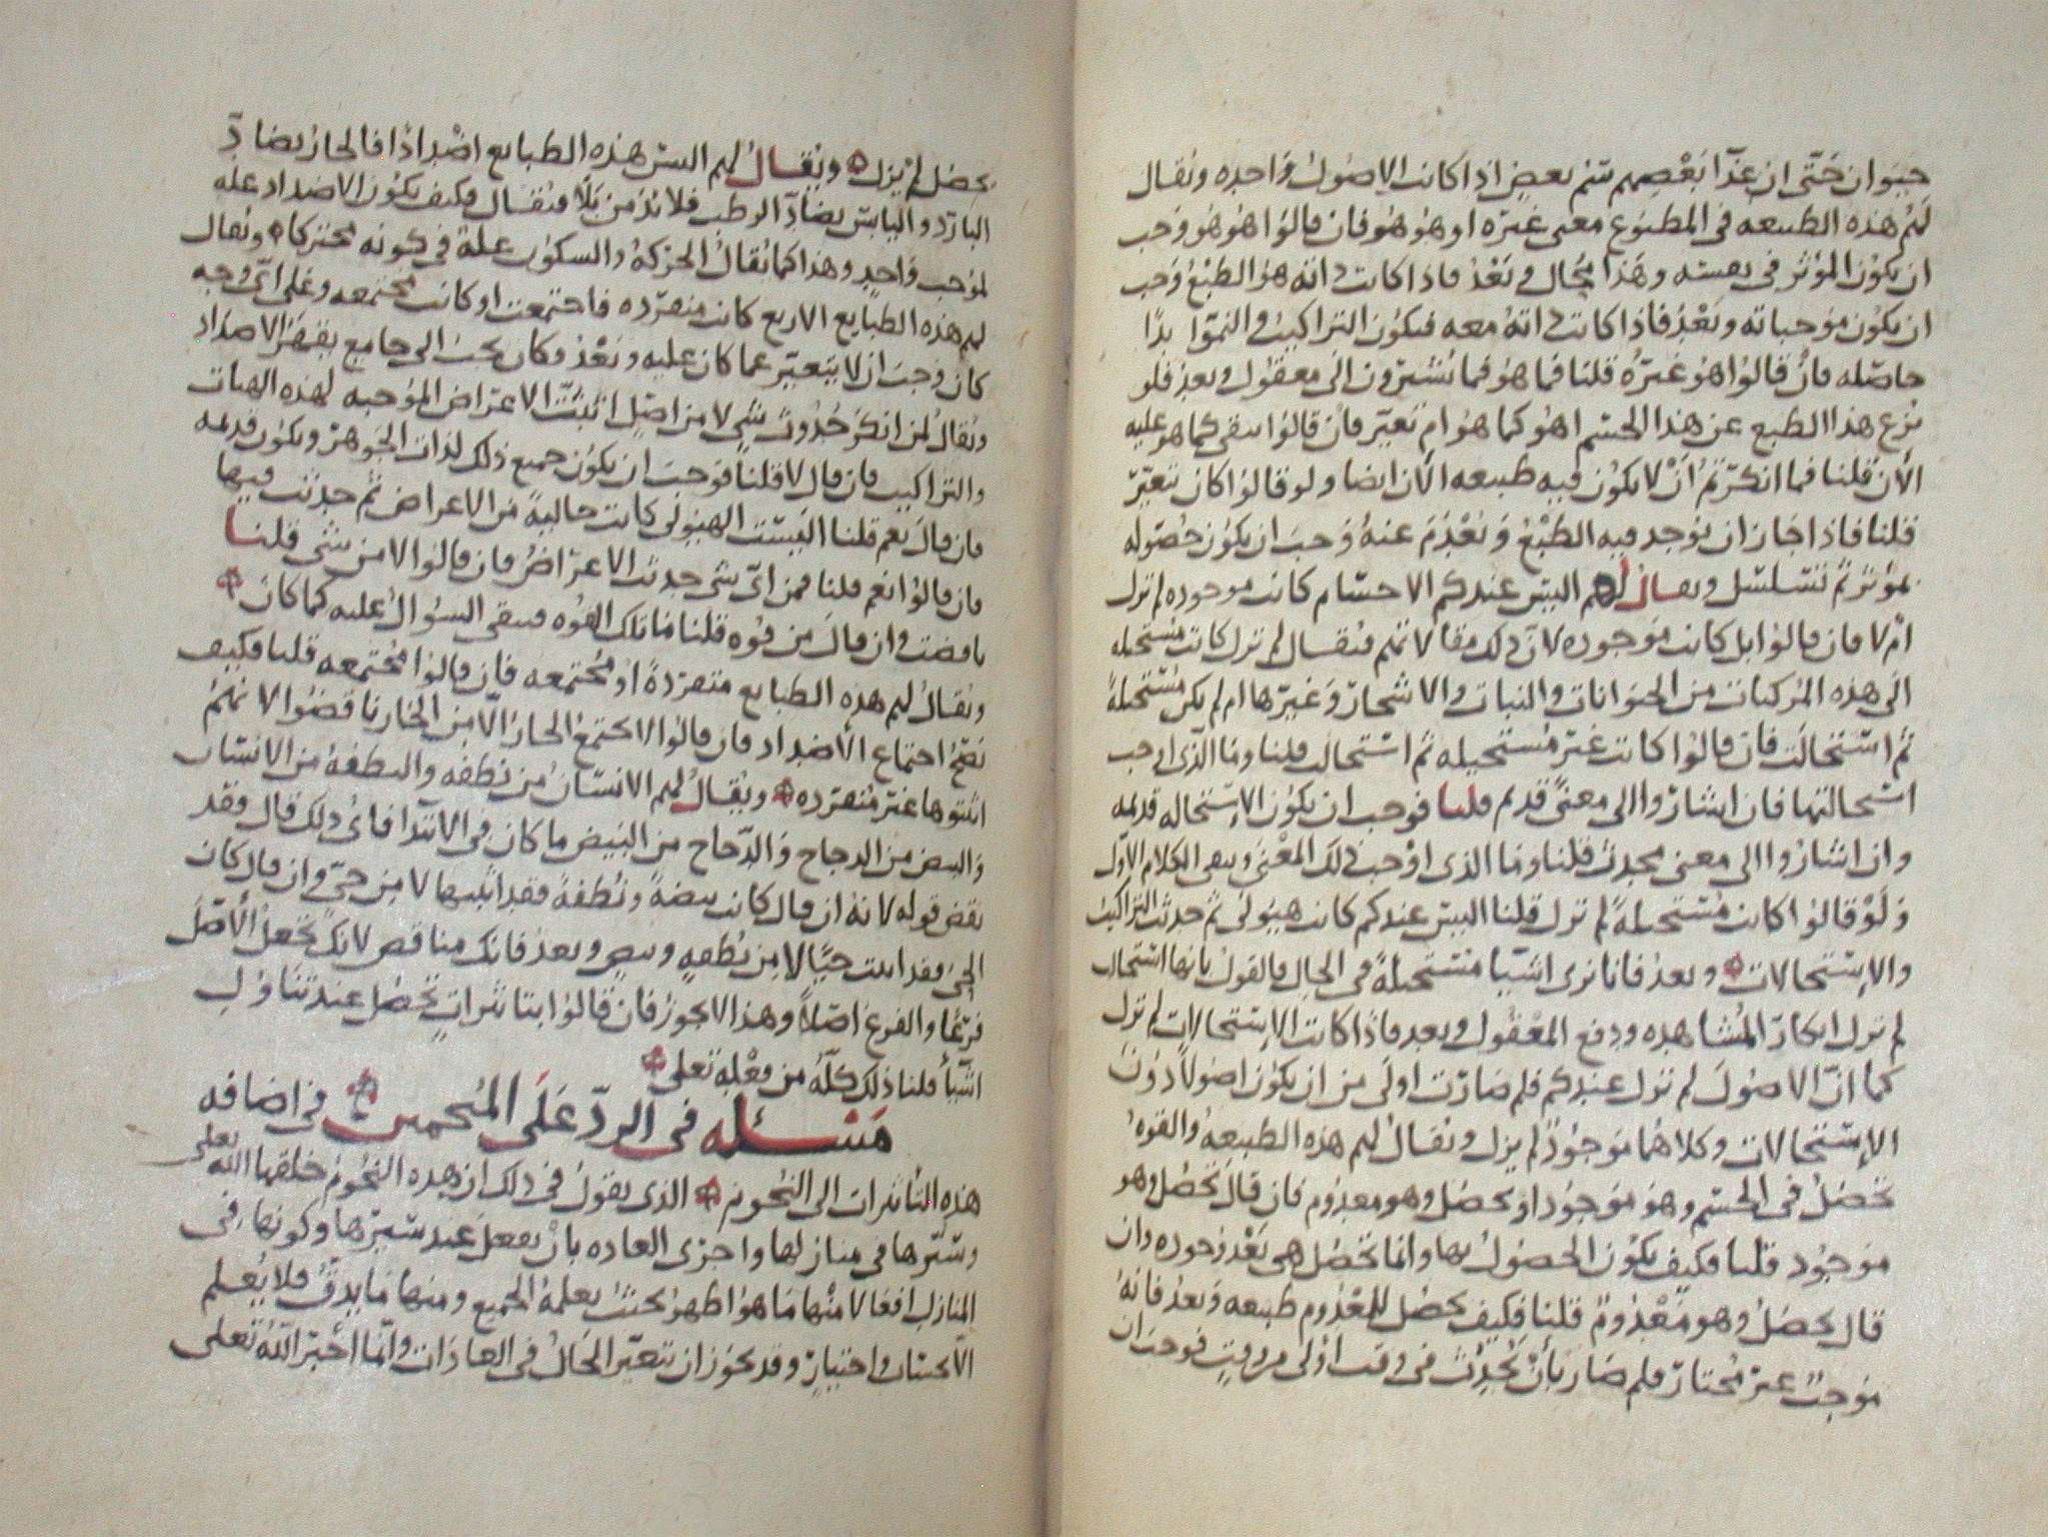 حيوان حتى ان غذا بعضهم سم بعض اذا كانت الاصول واحده ويقال
لهم هذه الطبيعه في المطبوع معنى غيره او هو هو فان قالوا هو هو وجب
ان يكون المؤثر في نفسه وهذا محال وبعد فاذا كانت ذاته هو الطبع وجب
ان يكون موجباته وبعد فاذا كانت ذاته معه فيكون التراكيب والنموا بدا
حاصله فان قالوا هو غيره قلنا فما هو فما تشيرون الى معقول وبعد فلو
نزع هذا الطبع عن هذا الجسم اهو كما هو ام تغير فان قالوا يبقى كما هو عليه
الآن قلنا فما انكرتم أن لا يكون فيه طبيعه الآن ايضا ولو قالوا كان تغير
قلنا فاذا جاز ان يوجد فيه الطبع ويعدم عنه وجب ان يكون حصوله
بمؤثر ثم تتسلسل ويقال لهم اليس عندكم الاجسام كانت موجوده لم تزل
ام لا فان قالوا بل كانت موجوده لان ذلك مقالاتهم فيقال لم تزل كانت مستحيله
الى هذه المركبات من الحيوانات والنبات والاشجار وغيرها ام لم يكن مستحيلة
ثم استحالت فان قالوا كانت غير مستحيله ثم استحالت قلنا وما الذى اوجب
استحالتها فان اشاروا الى معنى قديم قلنا فوجب ان يكون الاستحاله قديمه
وان اشاروا الى معنى محدث قلنا وما الذى اوجب ذلك المعنى ويبقى الكلام الاول
ولو قالوا كانت مستحيلة لم تزل قلنا اليس عندكم كانت هيولى ثم حدثت التراكيب
والاستحالات وبعد فانا نرى اشيا مستحيلة في الحال فالقول بانها استحالت
لم تزل انكار المشاهده ودفع المعقول وبعد فاذا كانت الاستحالات لم تزل
كما ان الاصول لم تزل عندكم فلم صارت اولى من ان يكون اصولا دون
الاستحالات وكلاهما موجود لم يزل ويقال لهم هذه الطبيعه والقوه
تحصل في الجسم وهو موجود او يحصل وهو معدوم فان قال تحصل وهو
موجود قلنا فكيف يكون الحصول بها وانما تحصل هي بعد وجوده وان
قال يحصل وهو معدوم قلنا فكيف يحصل للمعدوم طبيعه وبعد فانه
موجب غير مختار فلم صار بأن يحدث في وقت اولى من وقت فوجب ان
يحصل لم يزل ويقال لهم اليس هذه الطبايع اضدادا فالحار يضاد
البارد واليابس يضاد الرطب فلا بد من بلا فيقال فكيف يكون الاضداد عله
لموجب واحد وهذا كما يقال الحركة والسكون علة في كونه متحركا ويقال
لهم هذه الطبايع الاربع كانت متفرده فاجتمعت او كانت مجتمعه وعلى اى وجه
كان وجب ان لا يتغير عما كان عليه وبعد وكان يجب الى جامع يقهر الاضداد
ويقال لمن انكر حدوث شي لا من اصل اثبت الاعراض الموجبه لهذه الهيات
والتراكيب فان قال لا قلنا فوجب ان يكون جميع ذلك لذات الجوهر ويكون قديمه
فان قال نعم قلنا اليست الهيولى كانت خالية من الاعراض ثم حدثت فيها
فان قالوا نعم قلنا فمن اى شي حدثت الاعراض فان قالوا لا من شي قلنا
ناقضت وان قال من قوه قلنا فما تلك القوه فيبقى السؤال عليه كما كان
ويقال لهم هذه الطبايع متفردة او مجتمعه فان قالوا مجتمعه قلنا فكيف
يصح اجتماع الأضداد فان قالوا لا يجتمع الحار الا من الحار ناقضوا لانهم
اثبتوها غير متفرده ويقال لهم الانسان من نطفه والنطفة من الانسان
والبيض من الدجاج والدجاج من البيض ما كان في الابتدا فاى ذلك قال فقد
نقض قوله لانه ان قال كانت بيضة ونطفة فقد اثبتها لا من حي وان قال كان
الحي فقد اثبت حيا لا من نطفه وبيض وبعد فانك مناقض لانك تجعل الأصل
فرعا والفرع اصلا وهذا لا يجوز فان قالوا بتاثيرات تحصل عند تناول
اشيا قلنا ذلك كله من فعله تعلى
مسئله في الرد على المنجمين في اضافه
هذه التاثيرات الى النجوم الذى يقول في ذلك ان هذه النجوم خلقها الله تعلى
وسيرها في منازلها واجرى العاده بان يفعل عند سيرها وكونها في
المنازل افعالا منها ما هو اظهر بحيث يعلمه الجميع ومنها ما يدق فلا يعلم
الا بحساب واختبار وقد يجوز ان تتغير الحال في العادات وانما اخبر الله تعلى